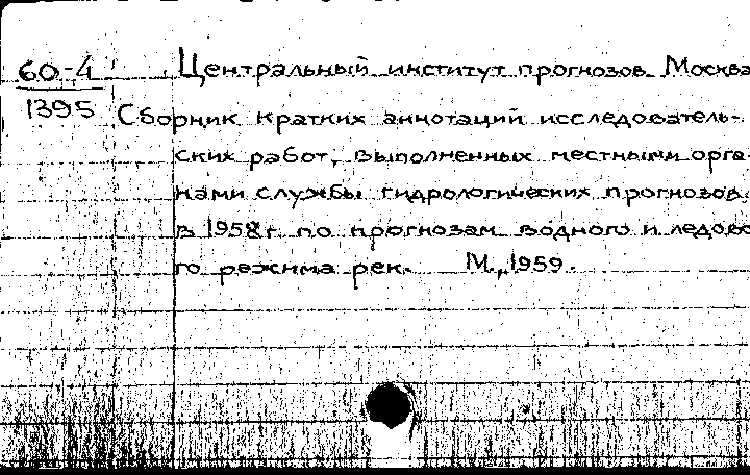 60-4 Центральный институт прогнозов. Москва
1395 Сборник кратких аннотаций исследователь-
ских работ, выполненных местными орга-
нами службы гидрологических прогнозов
в 1958г. по прогнозам водного и ледово-
го режима рек. М., 1959.